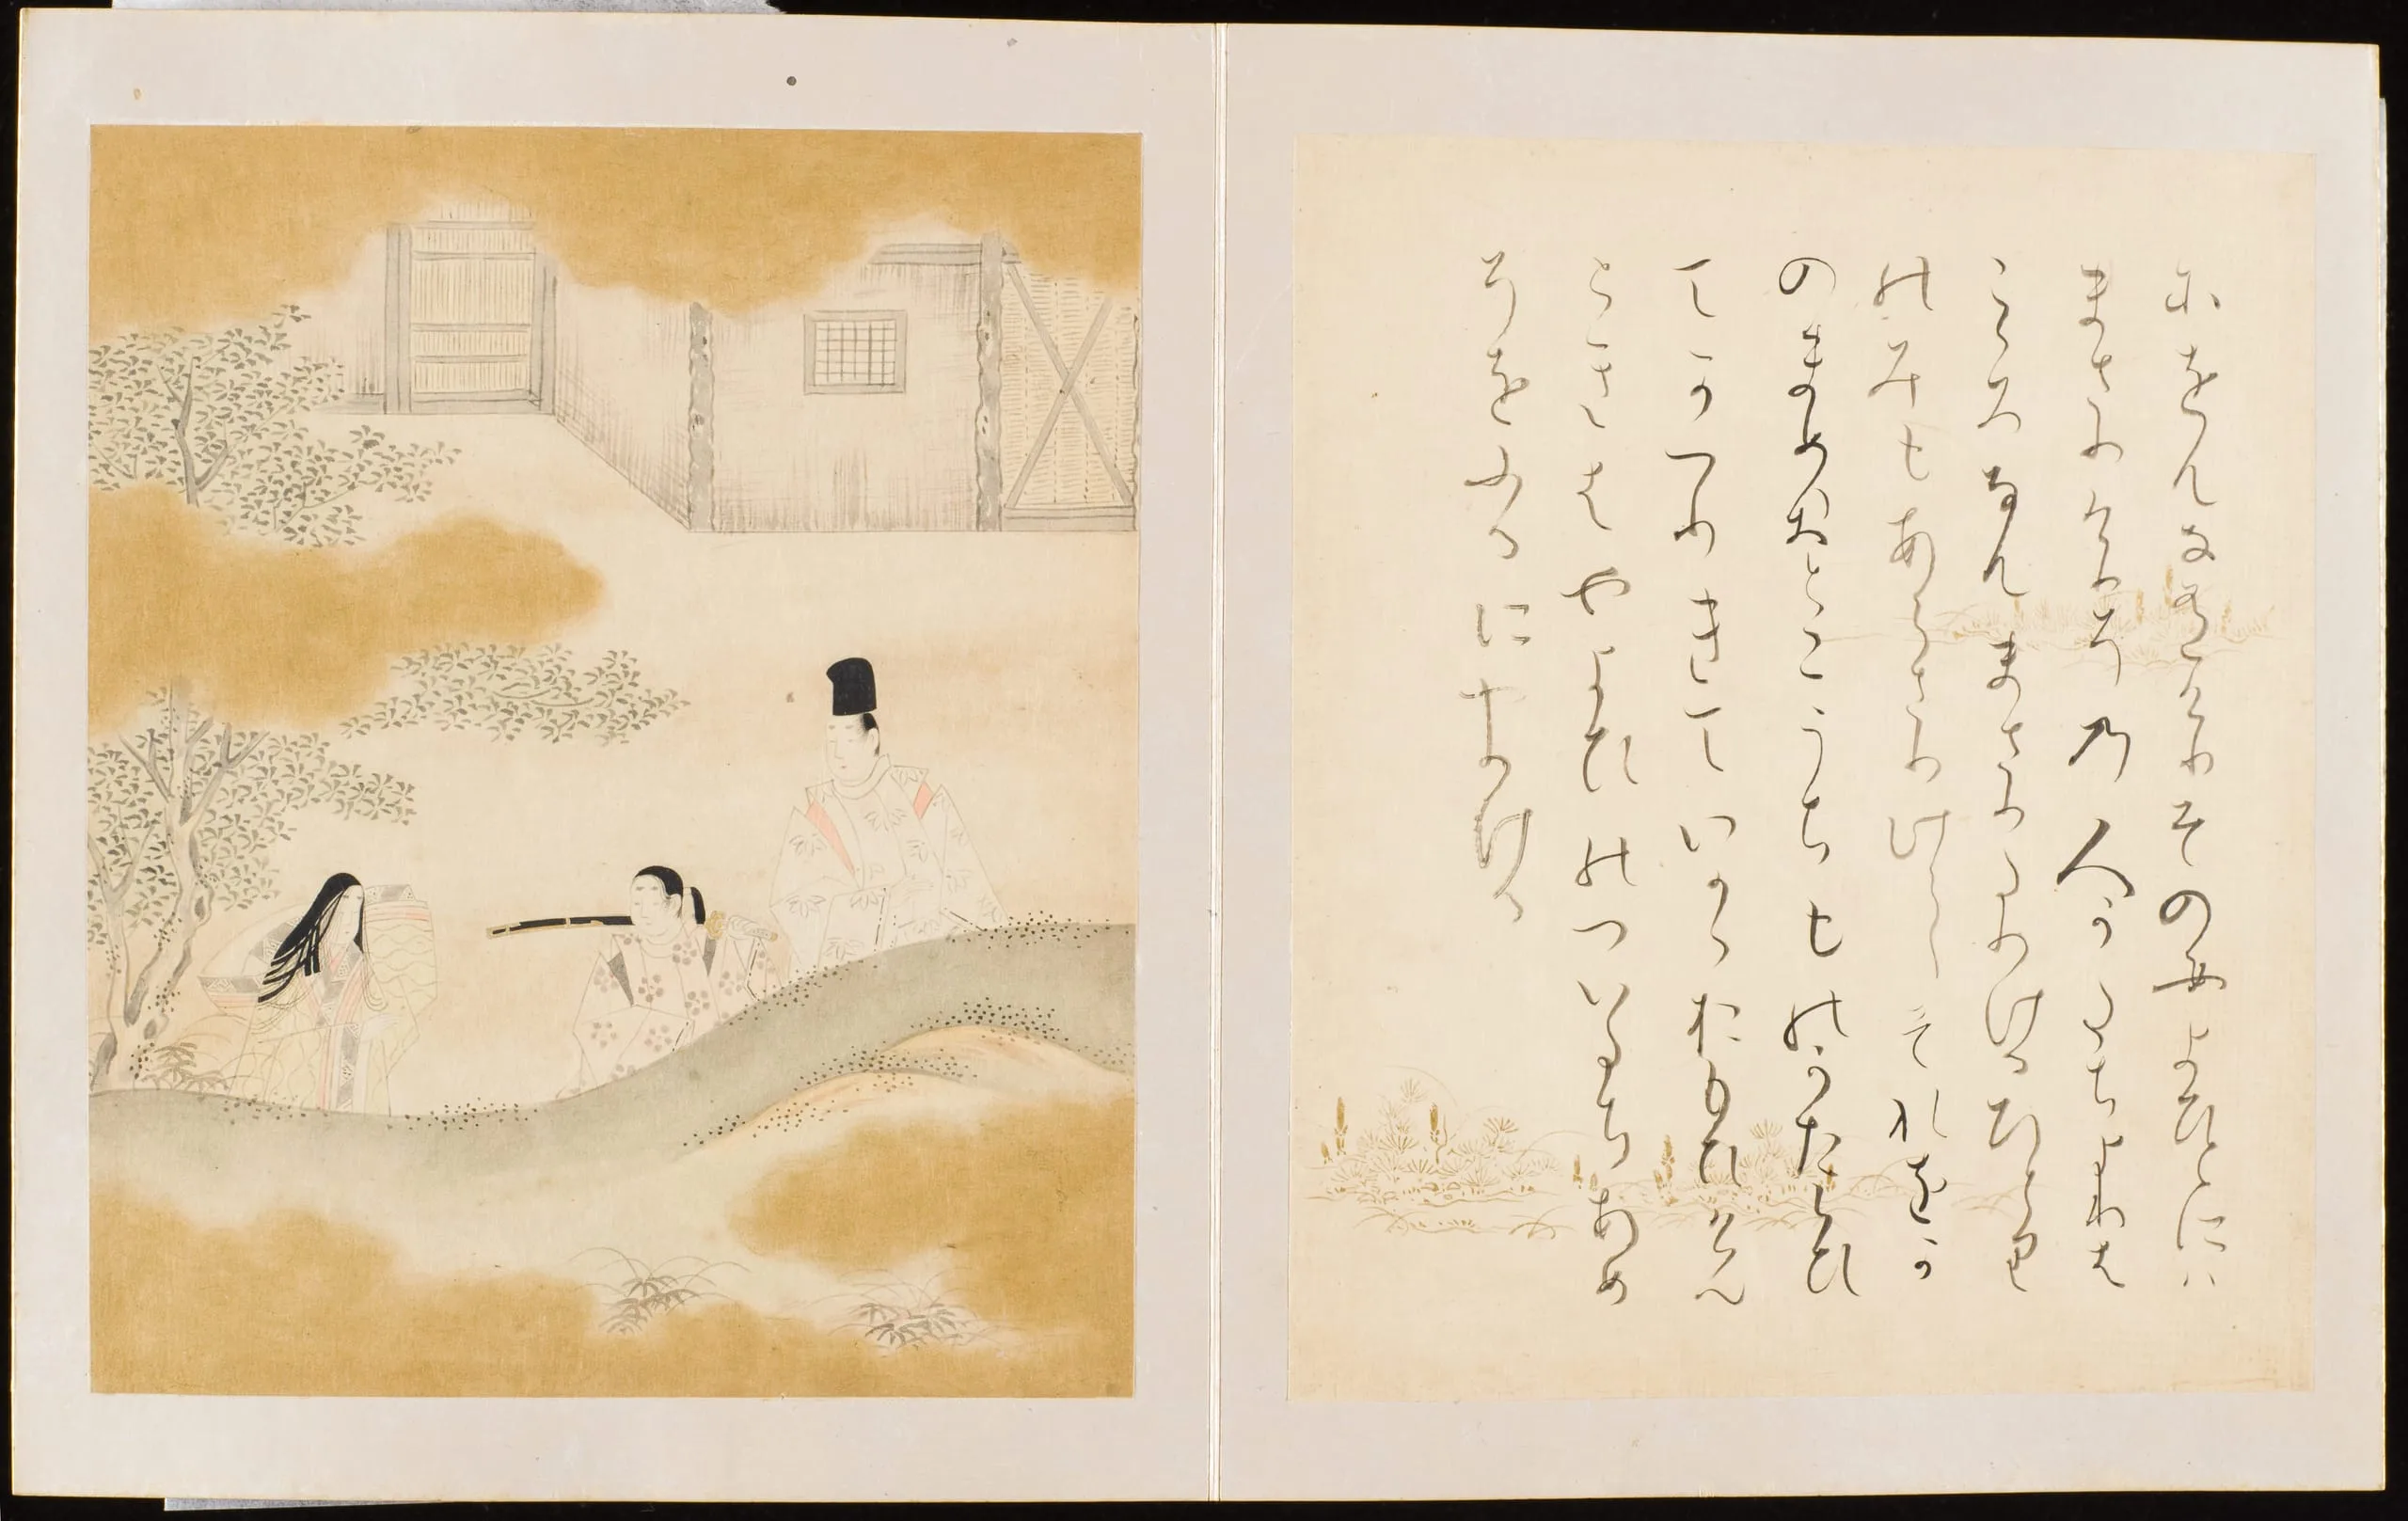 にをんなありけりその女よひとには
まされりけりその人かたちよりは
こころなんまさりたりけるひとり
のみもあらさりけらしそれをか
のまめおとここうちものかたらひ
てかへりきていかゝおもひけん
ときはやよひのついたちあめ
そをふるにやりける